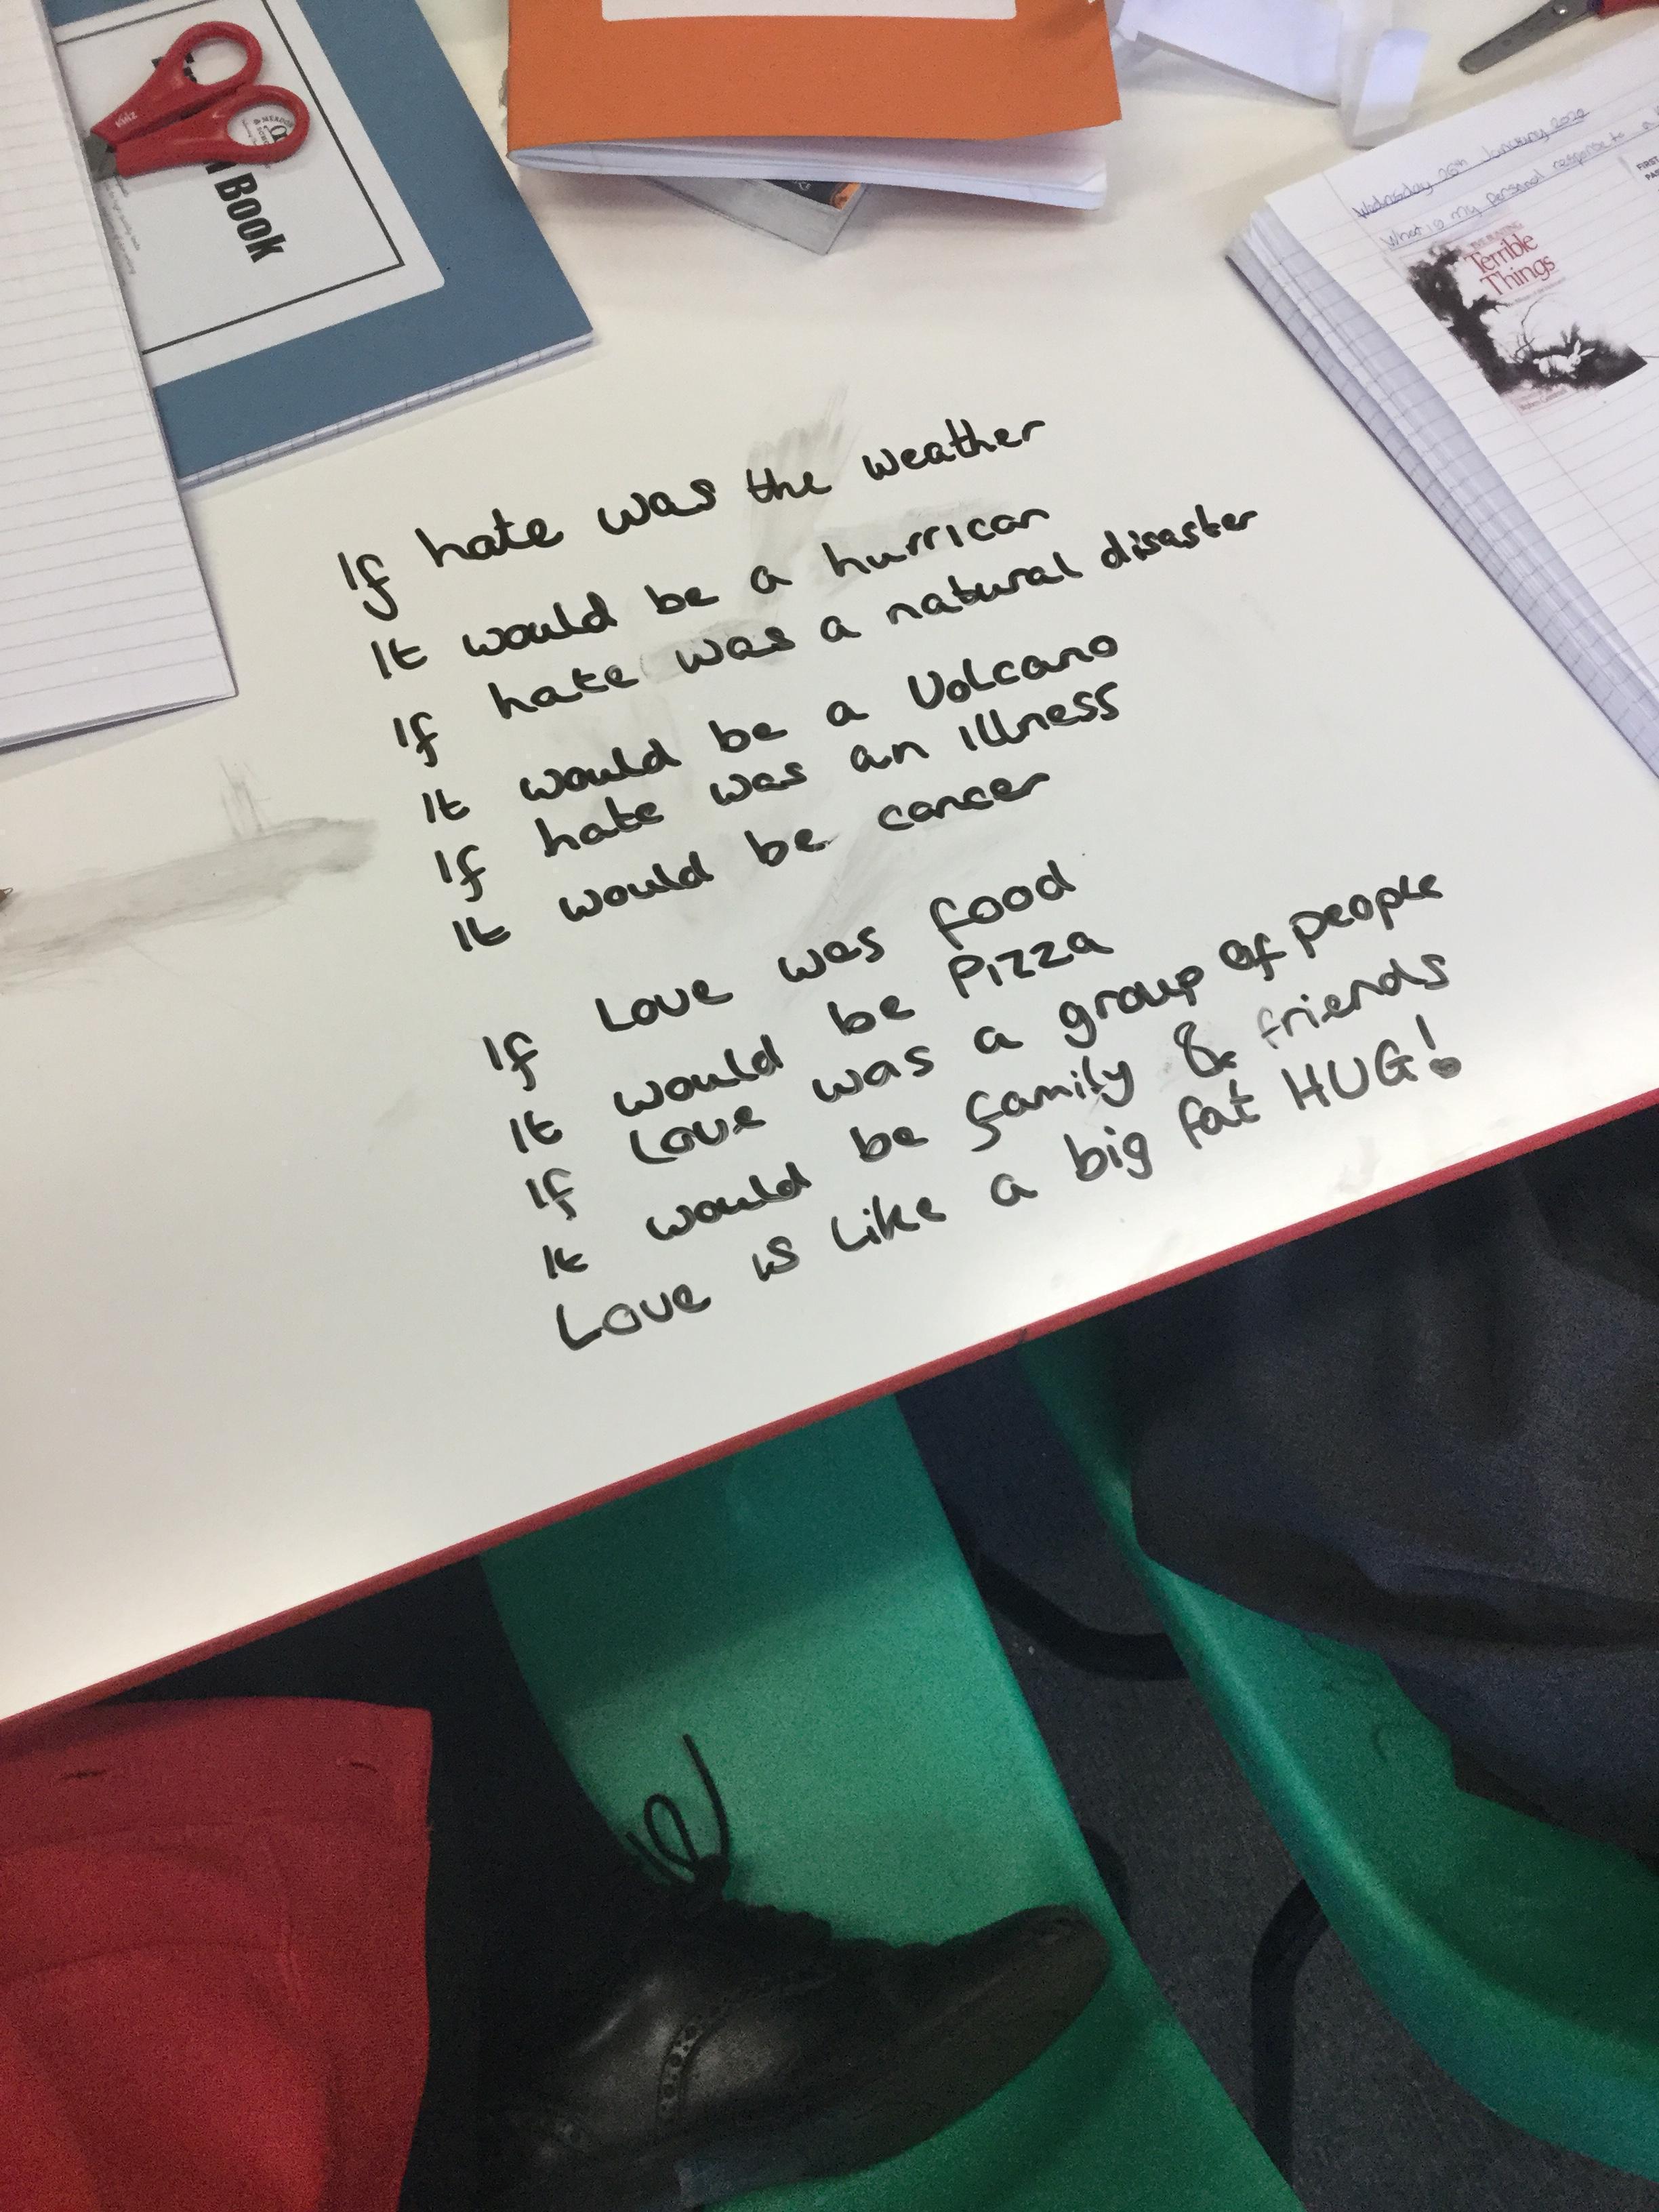 Kidz
Book
Wednesday 26th January 2022
What is my personal response to a
FIRST
Terrible
Things
If hate was the weather
It would be a hurrican
If hate was a natural disaster
It would be a Volcano
If hate was an illness
It would be cancer
If Love was food
It would be Pizza
If Love was a group of people
It would be family & friends
Love is like a big fat HUG!